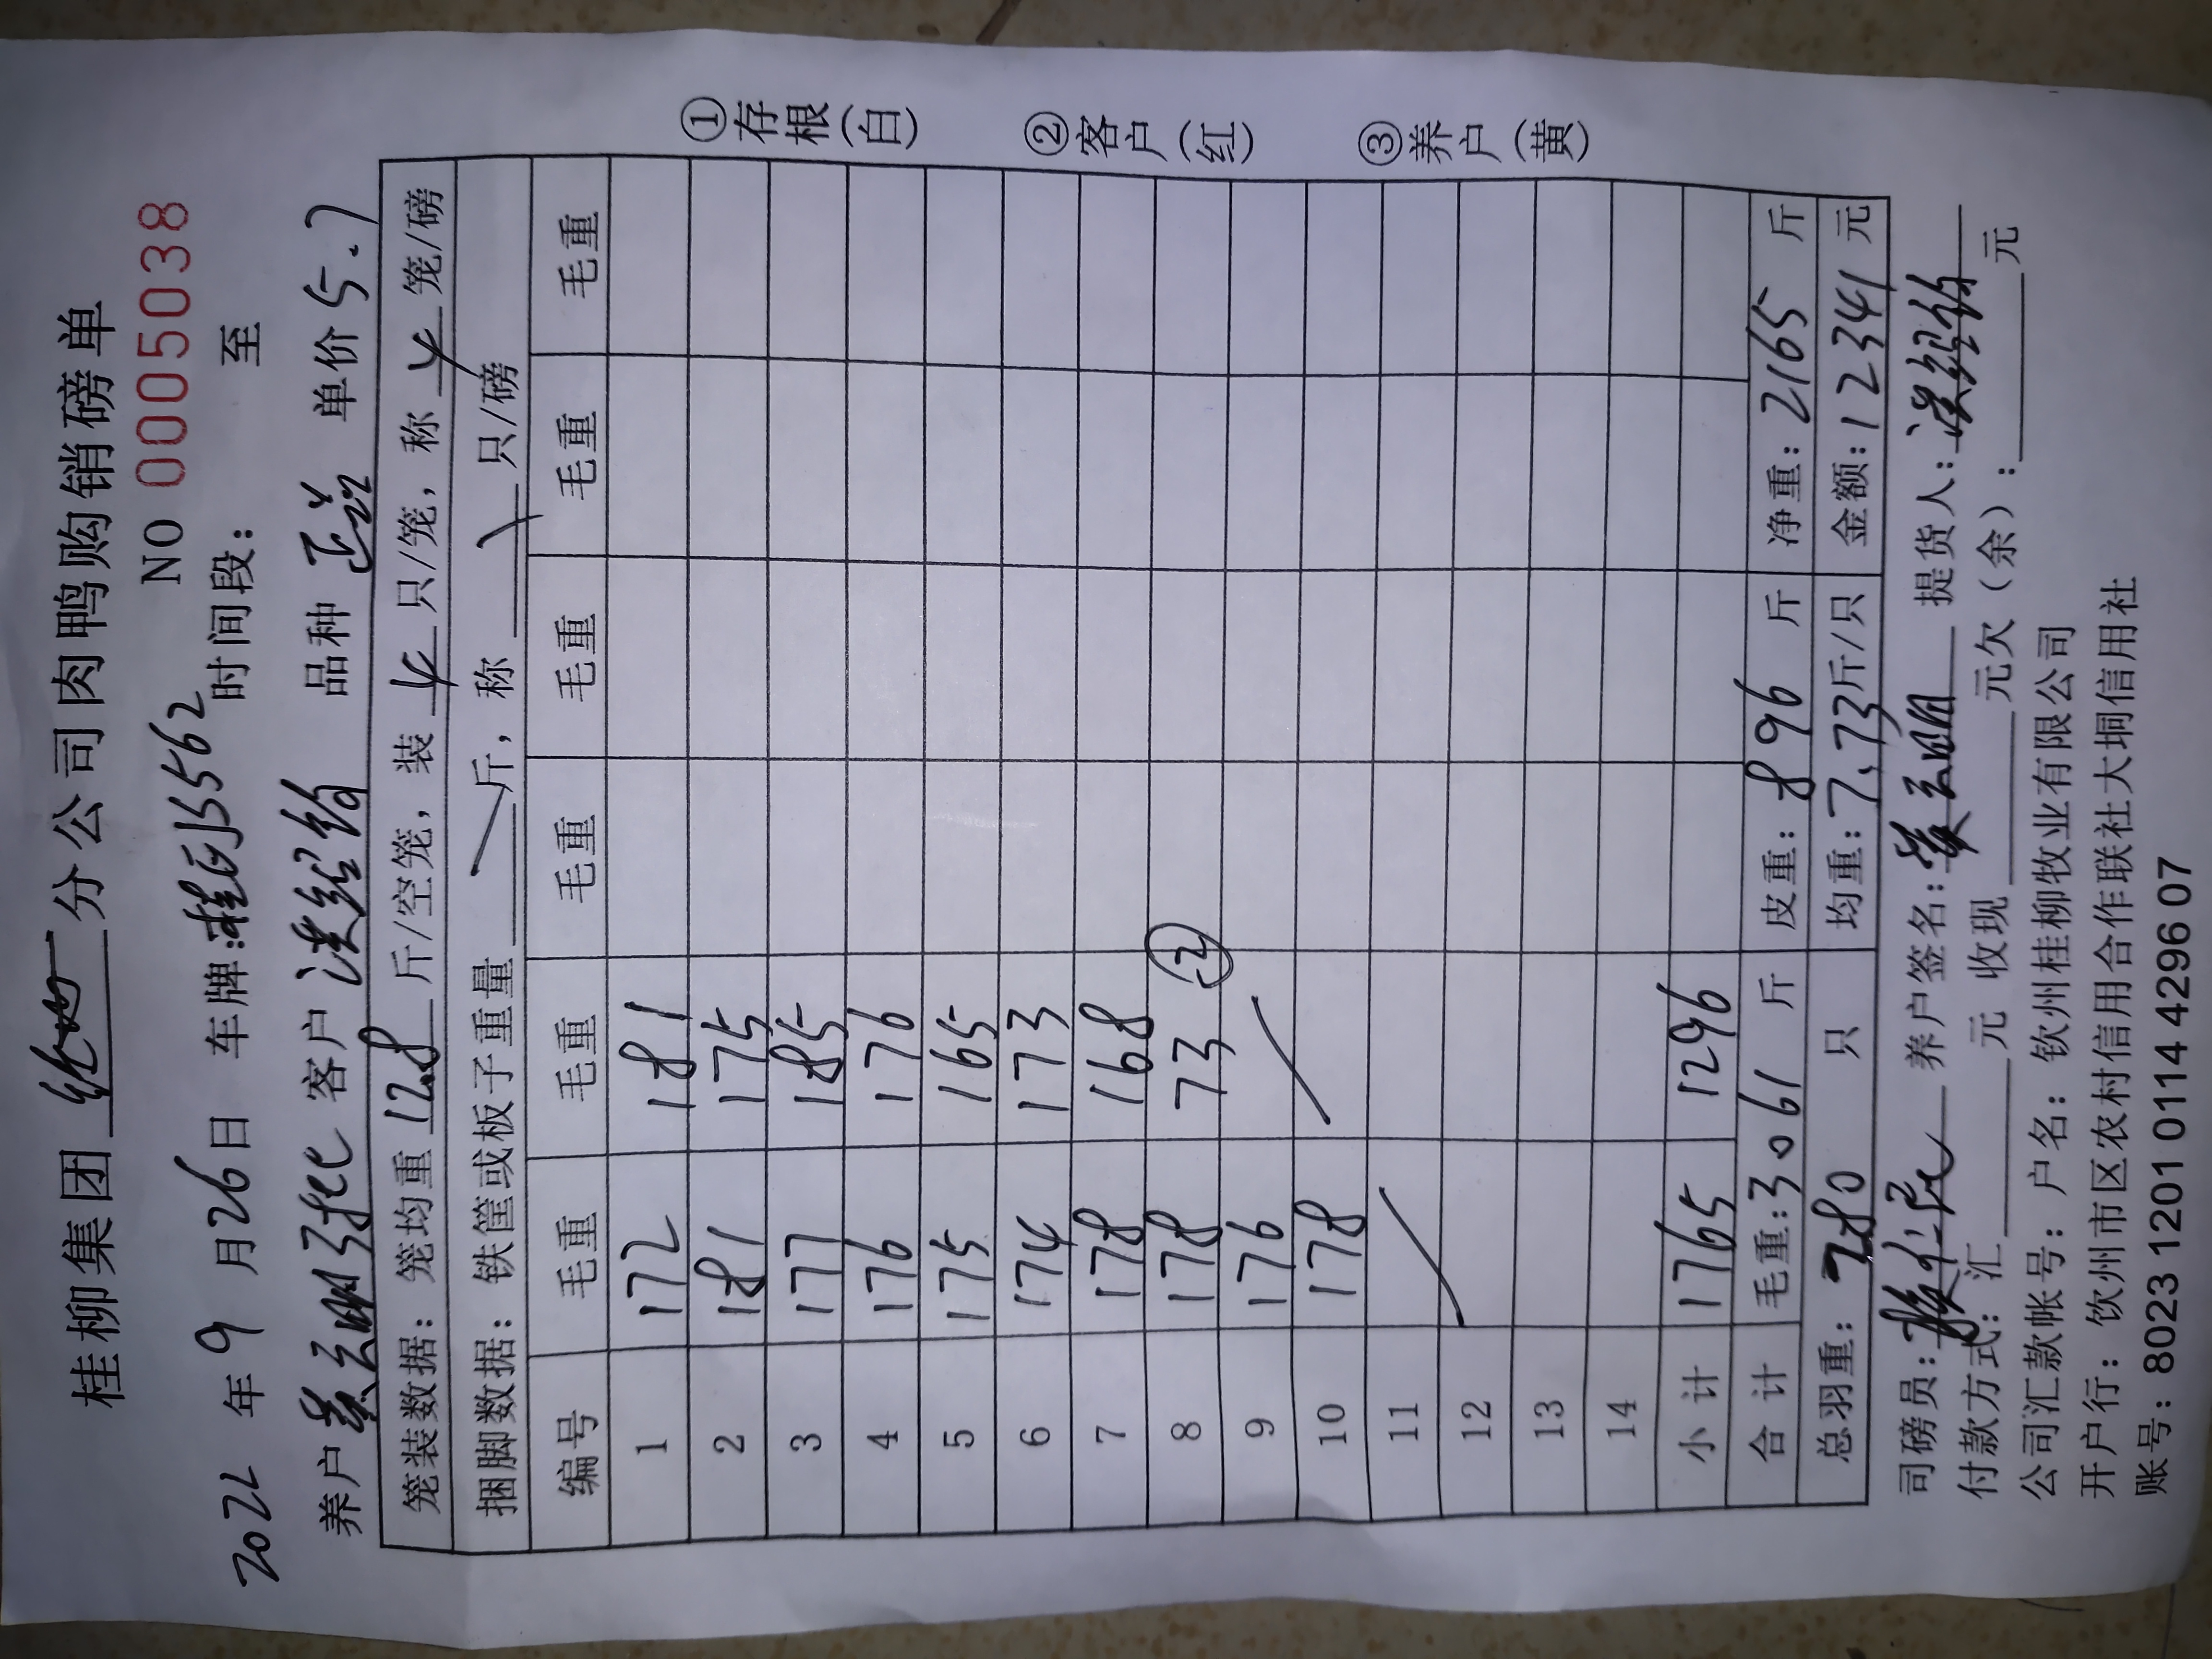 桂柳集团 分公司肉鸭购销磅单
NO 0005038
2022年9月26日 车牌:桂J5562 时间段: 至
养户 客户 洪绍钧 品种 单价 5.7
笼装数据:笼均重 12.8 斤/空笼,装 4 只/笼,称 4 笼/磅
捆脚数据:铁筐或板子重量 斤,称 只/磅
编号 毛重 毛重 毛重 毛重 毛重 毛重
1 172 181
2 181 175
3 177 185
4 176 176
5 175 165
6 174 173
7 178 168
8 178 73 ②
9 176
10 178
11
12
13
14
小计 1765 1296
合计 毛重:3061 斤 皮重:896 斤 净重:2165 斤
总羽重:280 只 均重:7.73斤/只 金额:12341元
司磅员: 养户签名: 提货人:洪绍钧
付款方式:汇 元 收现 元欠(余): 元
公司汇款帐号:户名:钦州桂柳牧业有限公司
开户行:钦州市区农村信用合作联社大垌信用社
账号:8023 1201 0114 4296 07
①存根(白)
②客户(红)
③养户(黄)